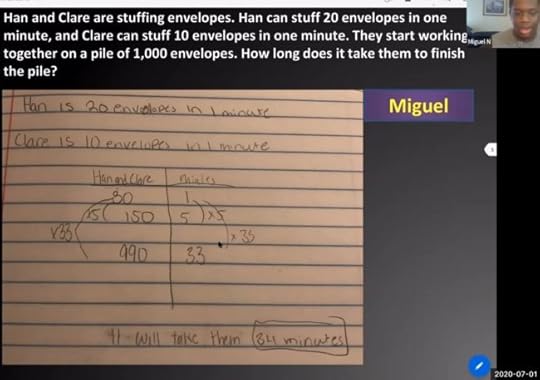 Han and Clare are stuffing envelopes. Han can stuff 20 envelopes in one
minute, and Clare can stuff 10 envelopes in one minute. They start working
together on a pile of 1,000 envelopes. How long does it take them to finish
the pile?
Miguel N
Miguel
Han is 20 envelopes in 1 minute
Clare is 10 envelopes in 1 minute
Han and Clare minutes
30 1
x5 150 5 x5
x33 x33
990 33
It will take them 34 minutes
2020-07-01